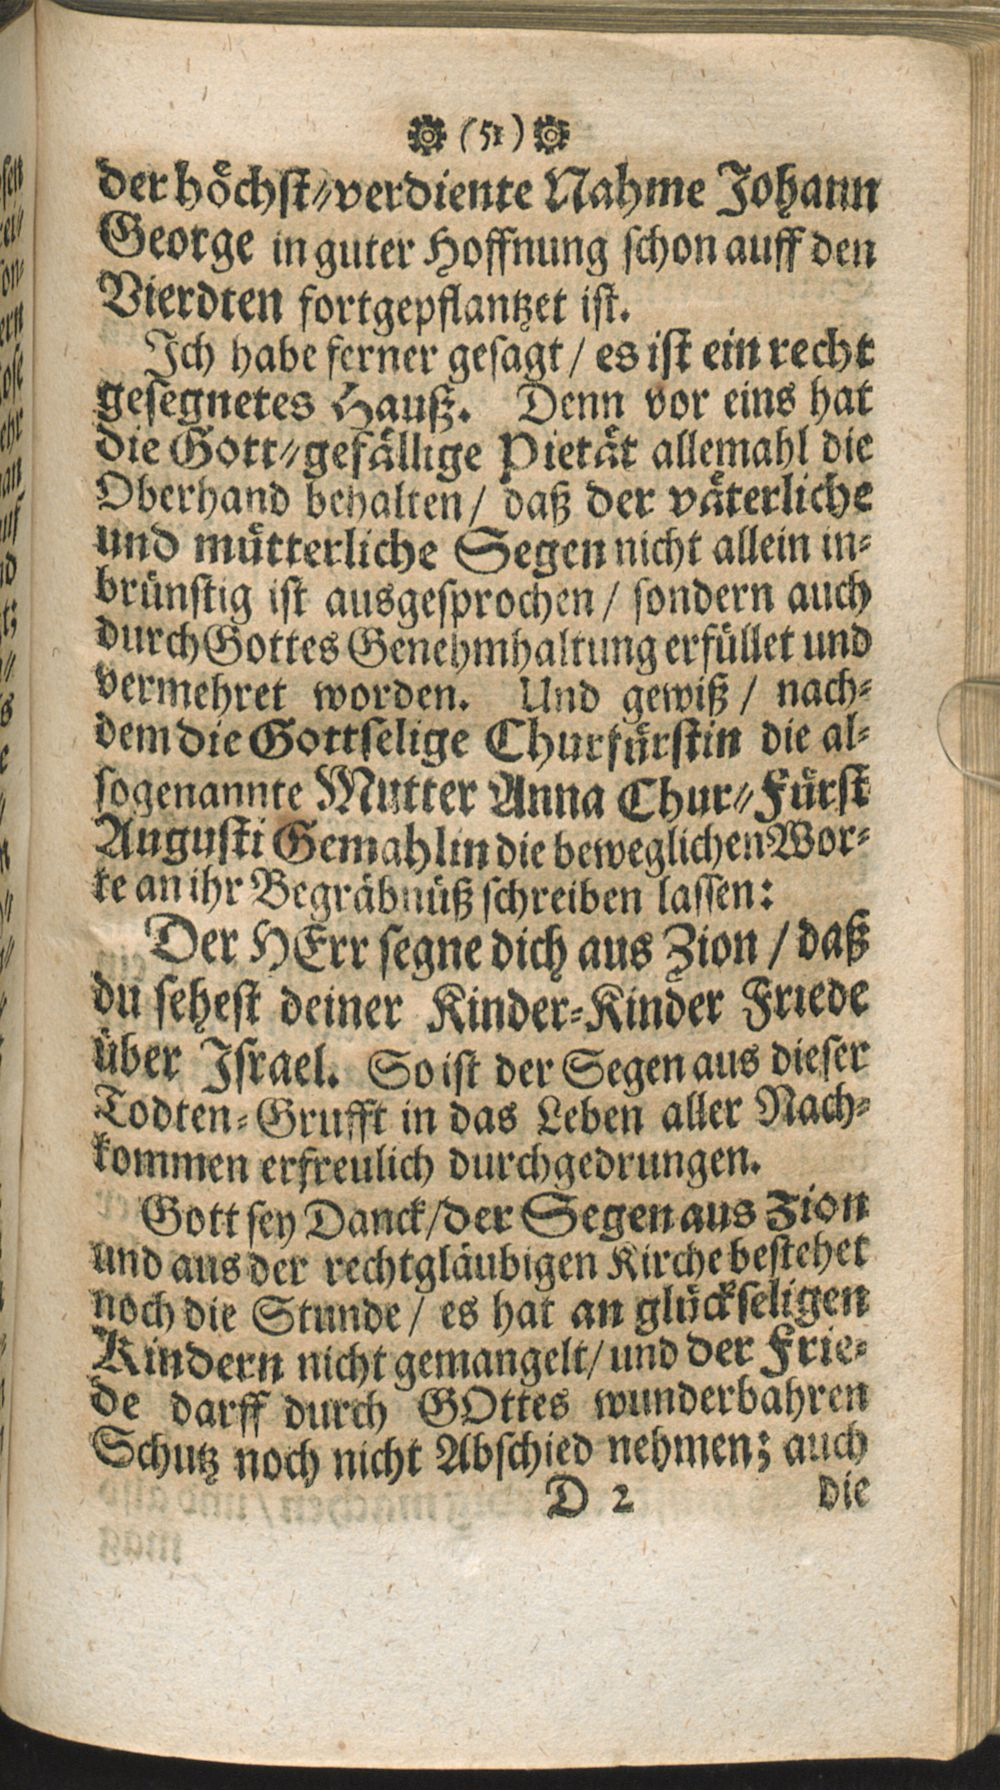 (51)
der höchst-verdiente Nahme Johann
George in guter Hoffnung schon auff den
Vierdten fortgepflantzet ist.
Ich habe ferner gesagt / es ist ein recht
gesegnetes Hauß. Denn vor eins hat
die Gott-gefällige Pietät allemahl die
Oberhand behalten / daß der väterliche
und mütterliche Segen nicht allein in-
brünstig ist ausgesprochen / sondern auch
durch Gottes Genehmhaltung erfüllet und
vermehret worden. Und gewiß / nach-
dem die Gottselige Churfürstin die al-
sogenannte Mutter Anna Chur-Fürst
Augusti Gemahlin die beweglichen Wor-
te an ihr Begräbnüß schreiben lassen:
Der HErr segne dich aus Zion / daß
du sehest deiner Kinder-Kinder Friede
über Israel. So ist der Segen aus dieser
Todten-Grufft in das Leben aller Nach-
kommen erfreulich durchgedrungen.
Gott sey Danck / der Segen aus Zion
und aus der rechtgläubigen Kirche bestehet
noch die Stunde / es hat an glückseligen
Kindern nicht gemangelt / und der Frie-
de darff durch GOttes wunderbahren
Schutz noch nicht Abschied nehmen; auch
D 2 die